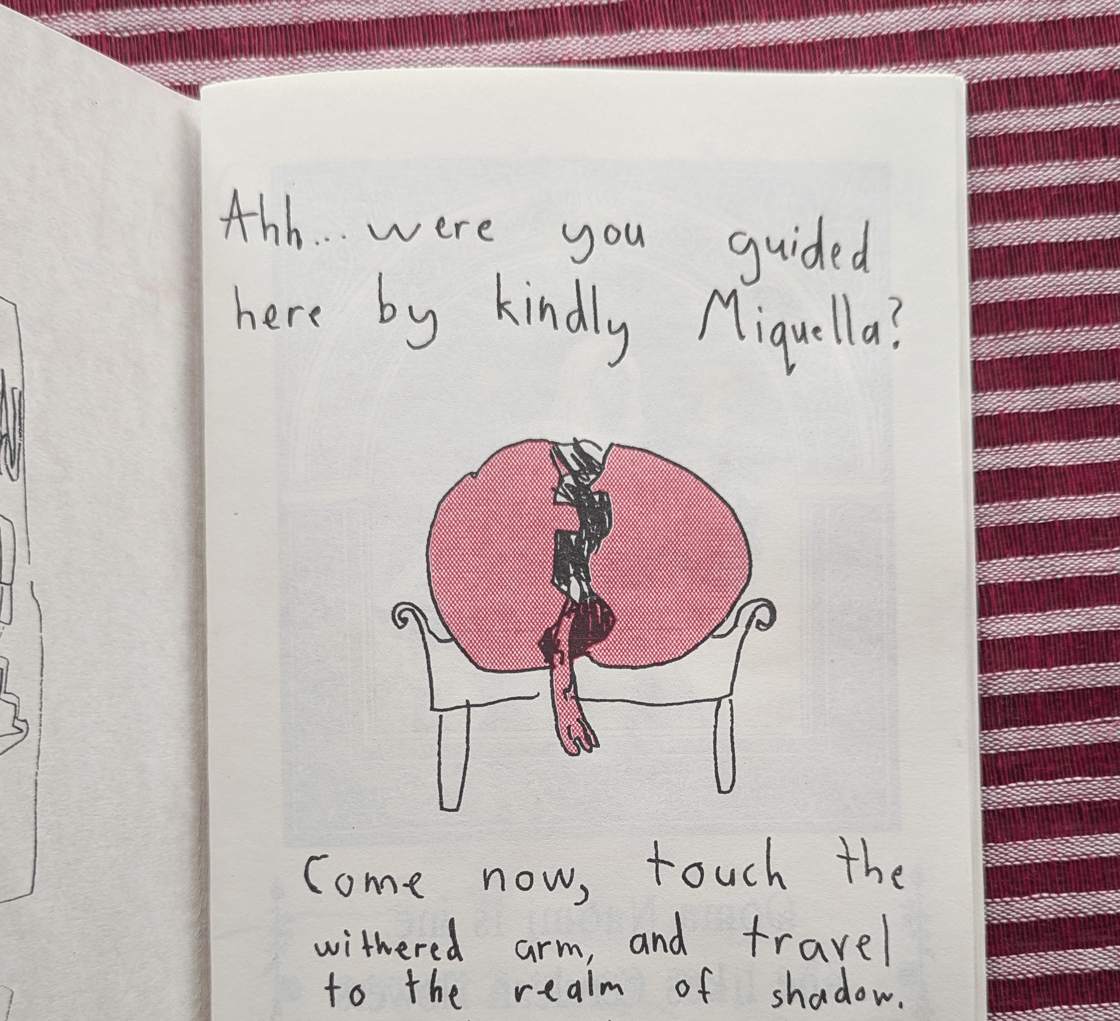 Ahh... were you guided
here by kindly Miquella?
Come now, touch the
withered arm, and travel
to the realm of shadow.